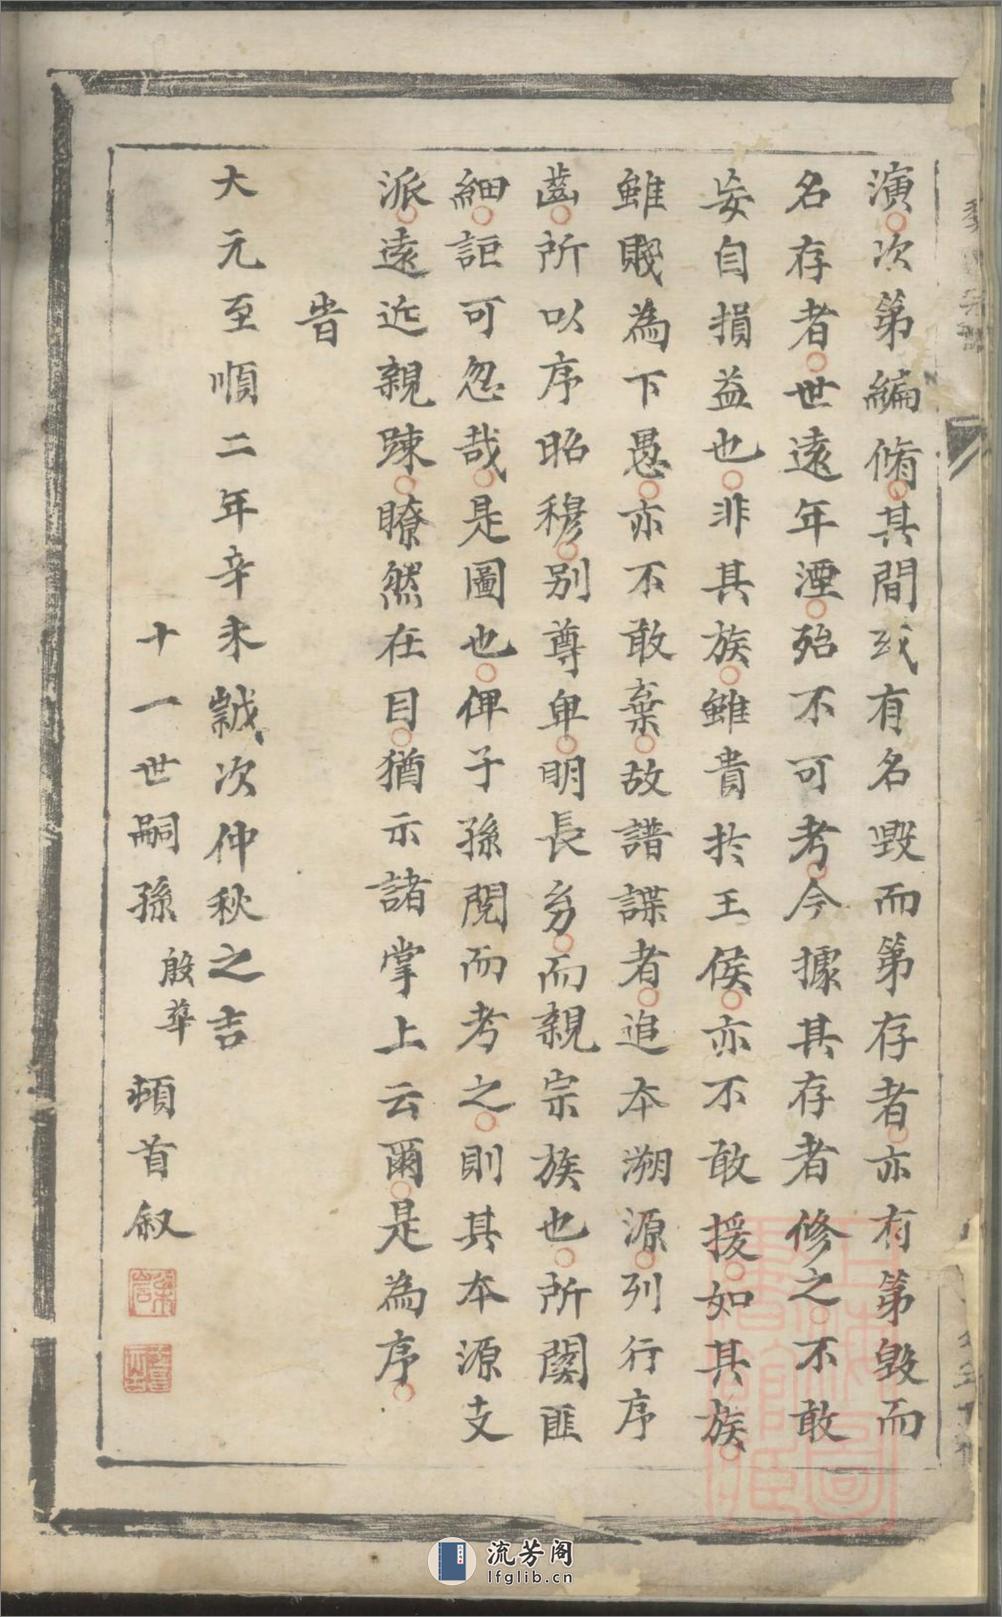 演次第編脩其間或有名毀而第存者亦有第毀而
名存者世遠年湮殆不可考今據其存者修之不敢
妄自損益也非其族雖貴於王侯亦不敢援如其族
雖賤為下愚亦不敢棄故譜諜者追本溯源列行序
齒所以序昭穆別尊卑明長㓜而親宗族也所関匪
細詎可忽哉是圖也俾子孫閱而考之則其本源支
派遠近親踈瞭然在目猶示諸掌上云爾是為序
旹
大元至順二年辛未誠次仲秋之吉
十一世嗣孫殷華頓首叙
流芳阁
lfglib.cn